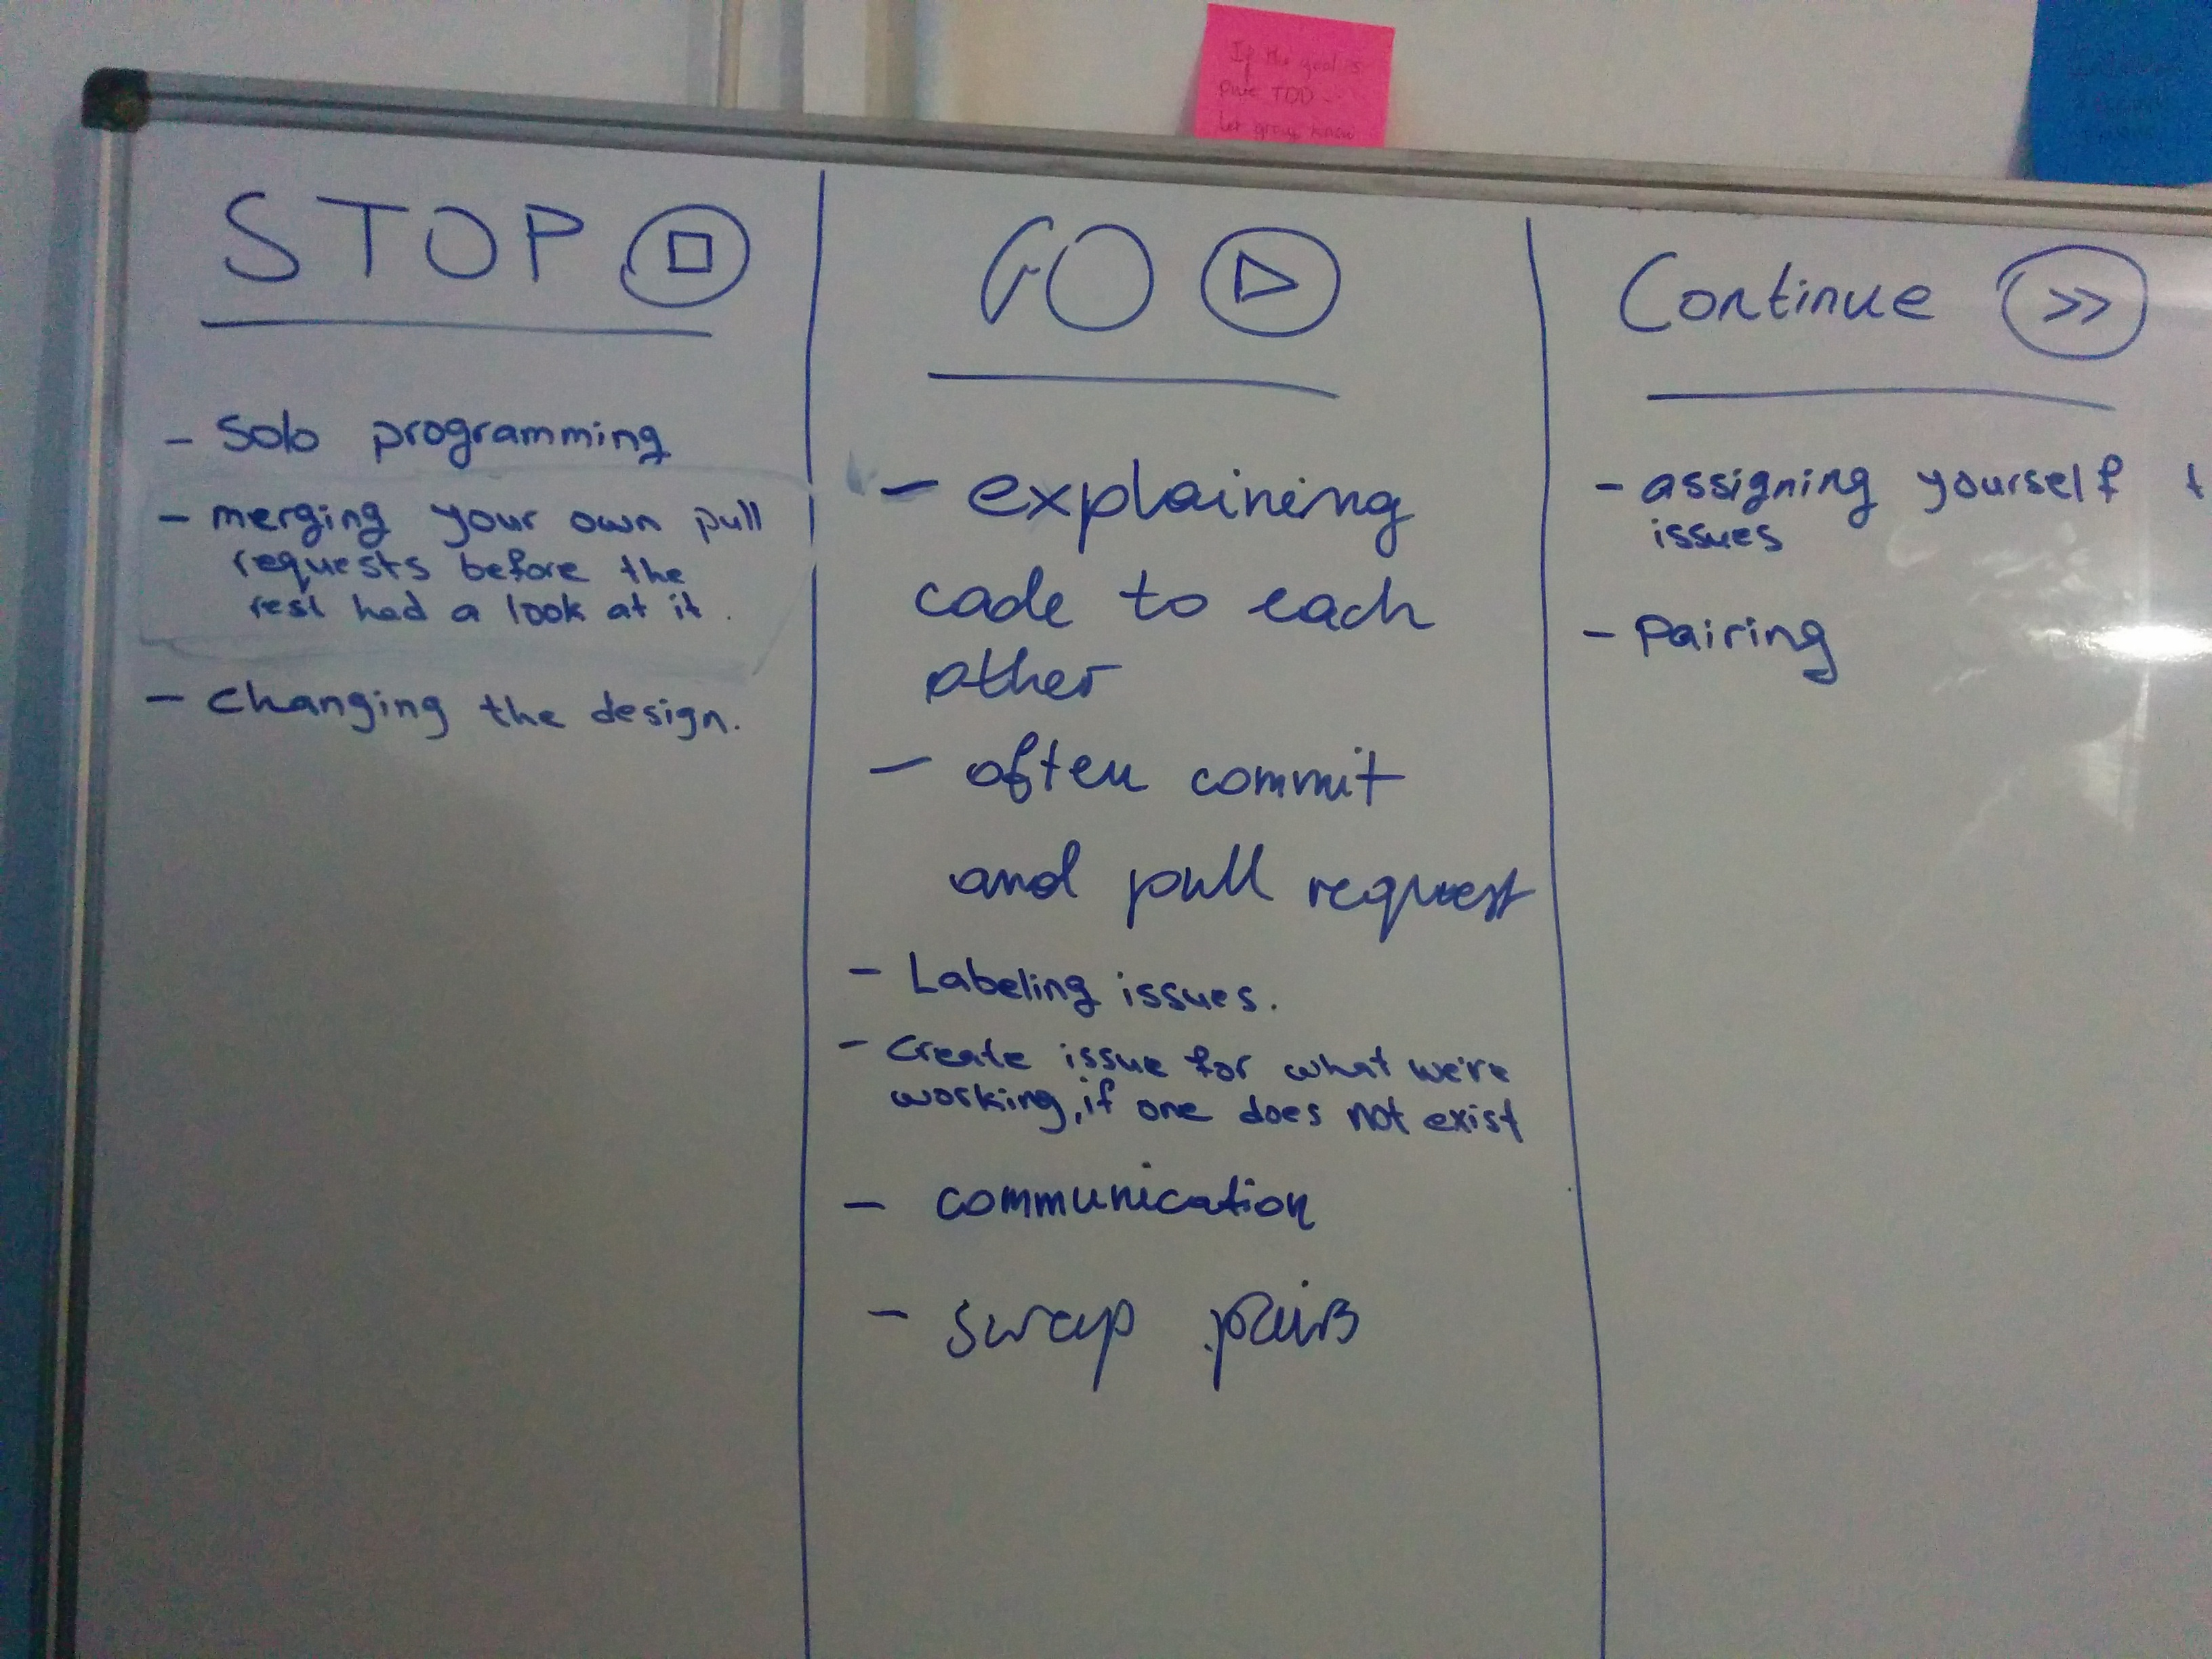 If the goal is
Pure TDD -
let group know
STOP
- Solo programming
- merging your own pull
requests before the
rest had a look at it.
- Changing the design.
GO
- explaining
code to each
other
- often commit
and pull request
- Labeling issues.
- Create issue for what we're
working, if one does not exist
- communication
- swap pairs
Continue >>
- assigning yourself
issues
- Pairing